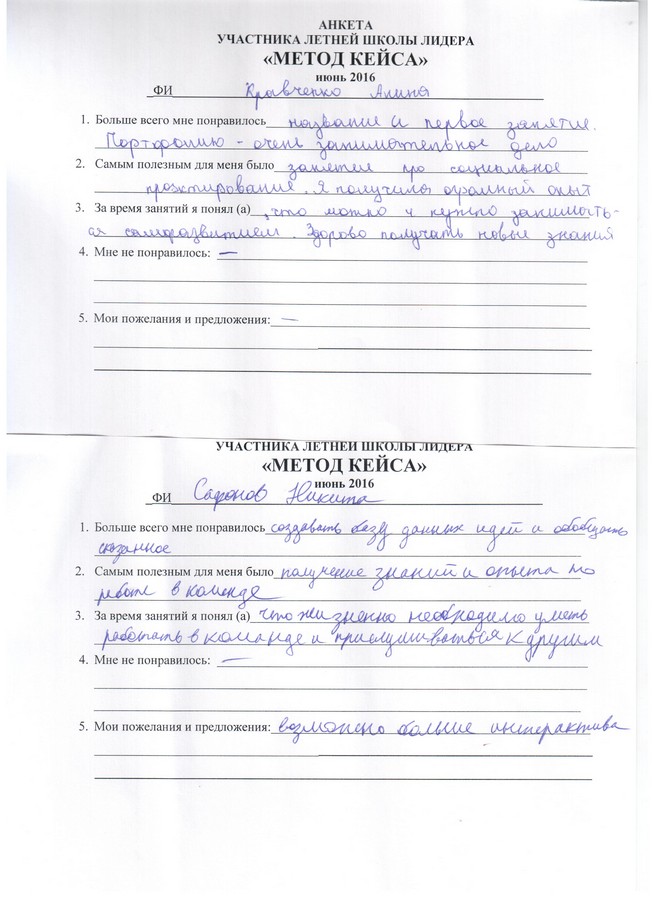 АНКЕТА
УЧАСТНИКА ЛЕТНЕЙ ШКОЛЫ ЛИДЕРА
«МЕТОД КЕЙСА»
июнь 2016
ФИ Кравченко Алина
1. Больше всего мне понравилось название и первое занятие.
Портфолио - очень занимательное дело
2. Самым полезным для меня было занятие про социальное
проэктирование. Я получила огромный опыт
3. За время занятий я понял (а) , что можно и нужно занимать-
ся саморазвитием. Здорово получать новые знания
4. Мне не понравилось: —
5. Мои пожелания и предложения: —
УЧАСТНИКА ЛЕТНЕЙ ШКОЛЫ ЛИДЕРА
«МЕТОД КЕЙСА»
июнь 2016
ФИ Сафонов Никита
1. Больше всего мне понравилось создавать базу данных идей и обобщать
сказанное
2. Самым полезным для меня было получение знаний и опыта по
работе в команде
3. За время занятий я понял (а) что жизненно необходимо уметь
работать в команде и прислушиваться к другим
4. Мне не понравилось: —
5. Мои пожелания и предложения: возможно больше интерактива